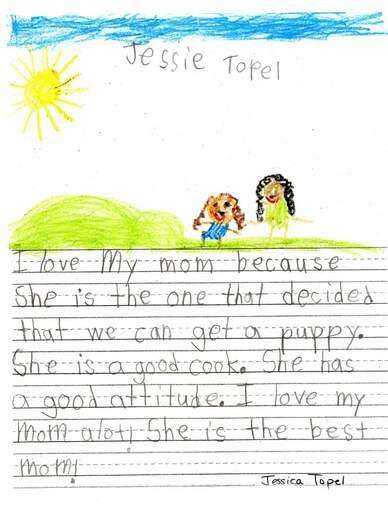 Jessie Topel
I love My mom because
She is the one that decided
that we can get a puppy.
She is a good cook. She has
a good attitude. I love my
Mom alot! She is the best
mom!
Jessica Topel